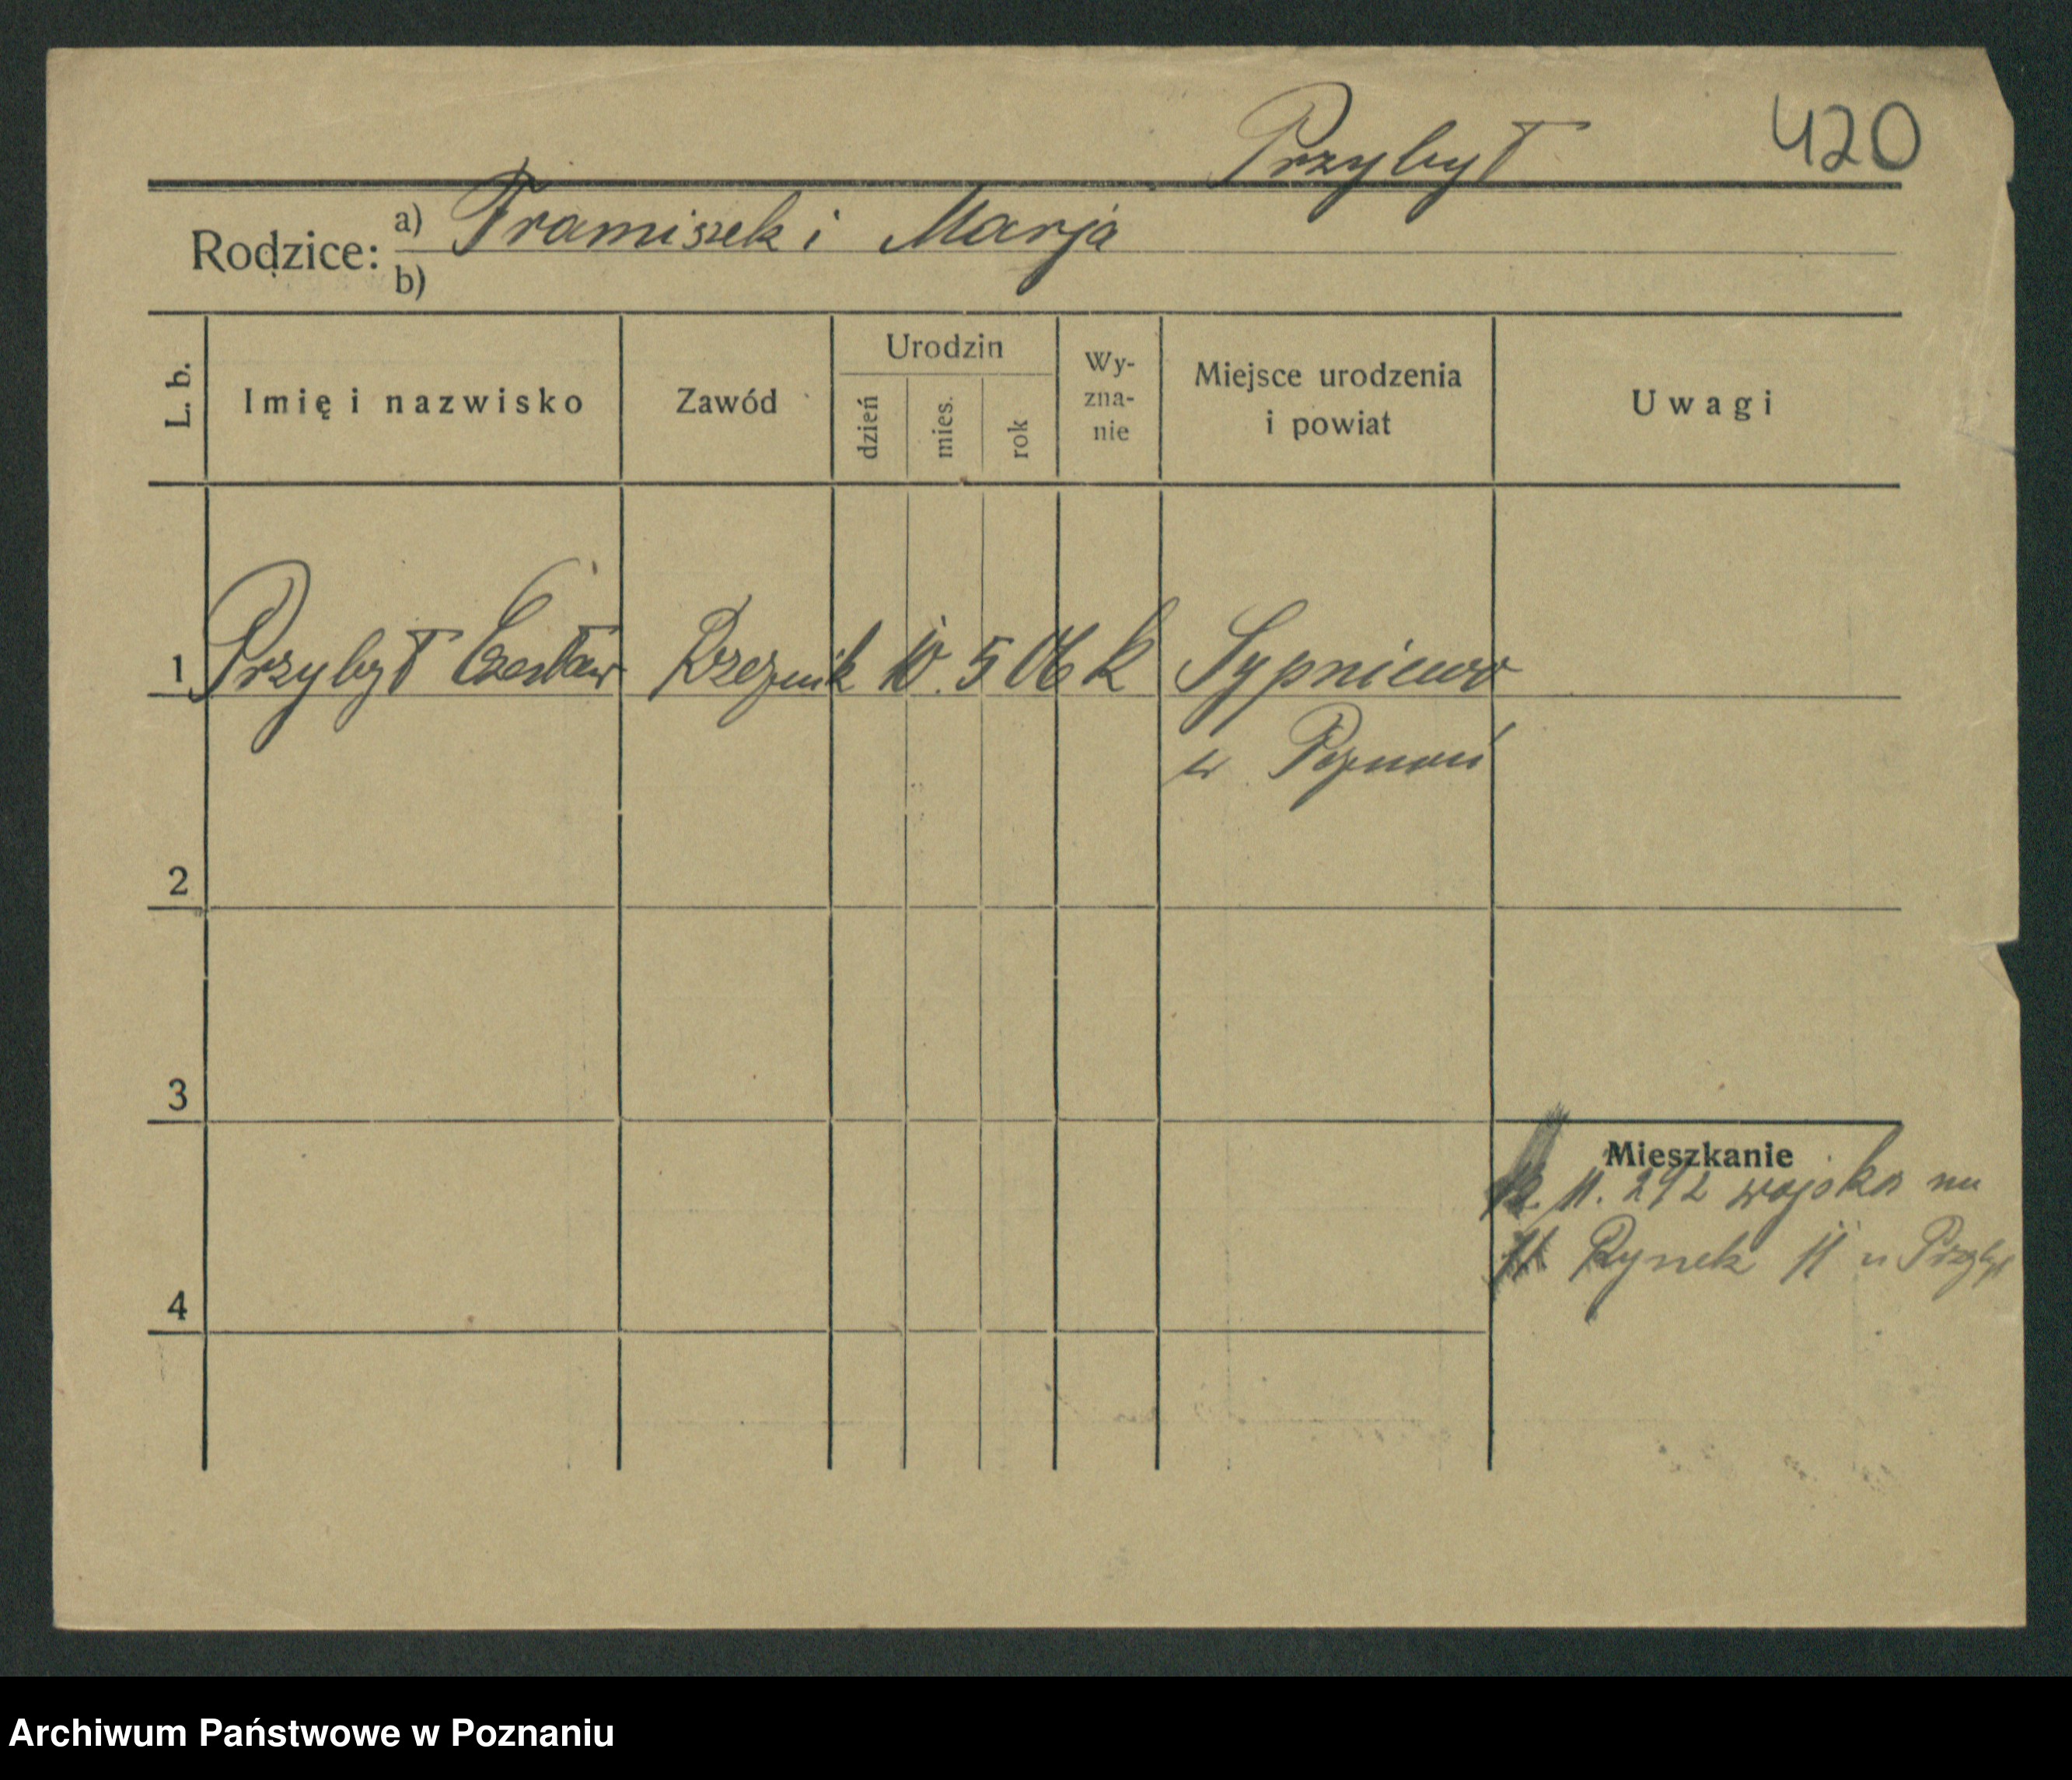 Przybył 420
Rodzice: a) Franciszek i Marja
b)
L. b. Imię i nazwisko Zawód Urodzin dzień mies. rok Wy-zna-nie Miejsce urodzenia i powiat Uwagi
1 Przybył Czesław Rzeznik 10. 5 06 k Sypniewo
w Poznań
2
3
Mieszkanie
11. 292 wojska
Rynek 11 u Przybył
4
Archiwum Państwowe w Poznaniu